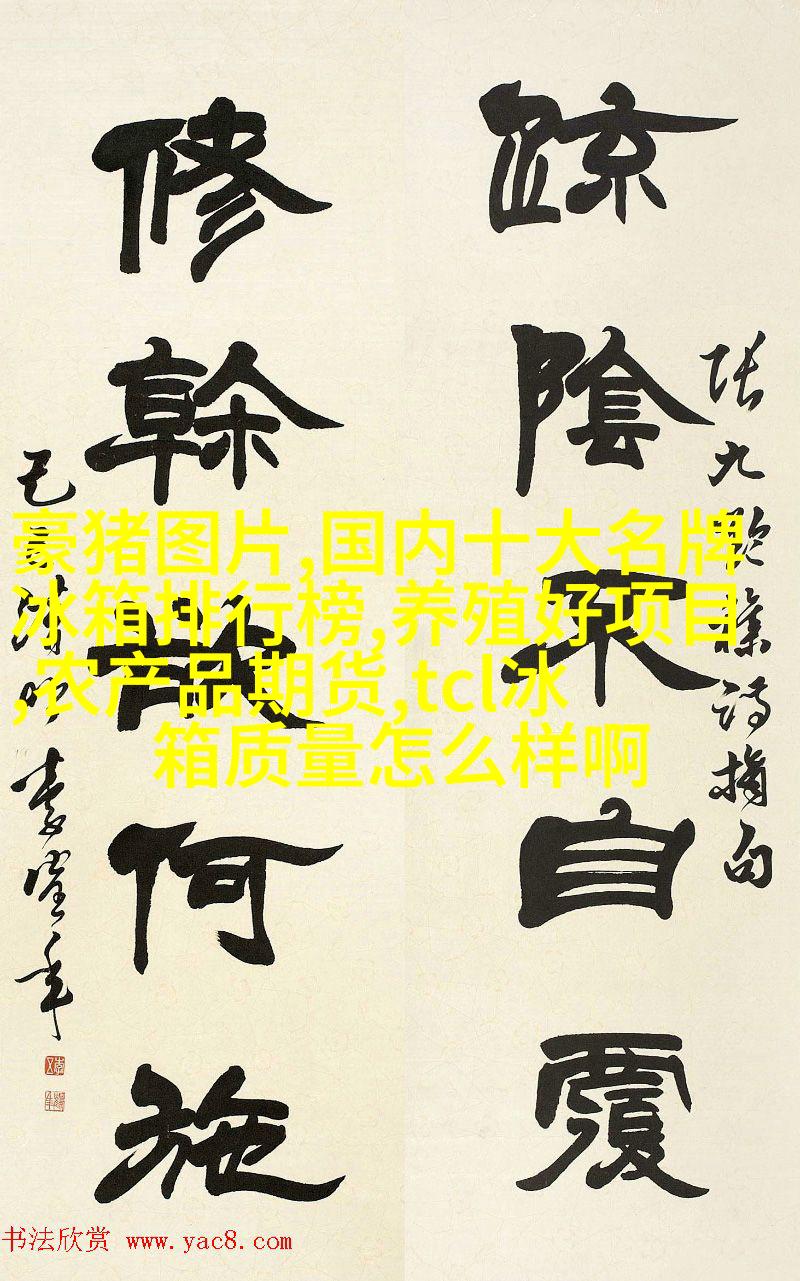 疏陰不自覆
張九齡集詩摘句
修幹欲何施
豪猪图片,国内十大名牌
冰箱排行榜,养殖好项目
,农产品期货,tcl冰
箱质量怎么样啊
书法欣赏 www.yac8.com